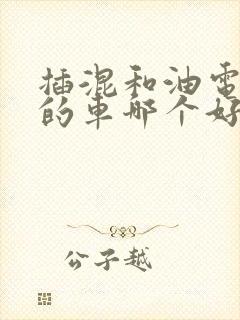 插混和油电
的车哪个好
公子越